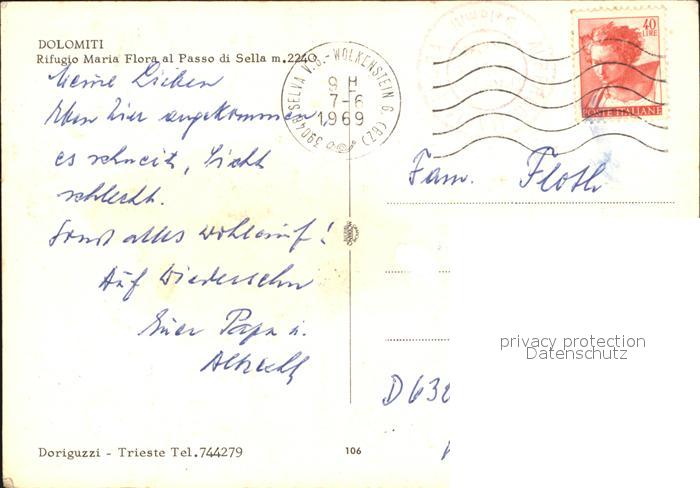 DOLOMITI
Rifugio Maria Flora al Passo di Sella m.2240
Meine Lieben
Eben hier angekommen,
es schneit, Sicht
schlecht.
Sonst alles wohlauf!
Auf Wiedersehn
Euer Papa u.
Albrecht
Doriguzzi - Trieste Tel.744279
106
39048 SELVA V.G.-WOLKENSTEIN G. (BZ)
9 H
7-6
1969
40
LIRE
POSTE ITALIANE
Fam. Floth
privacy protection
Datenschutz
D 632